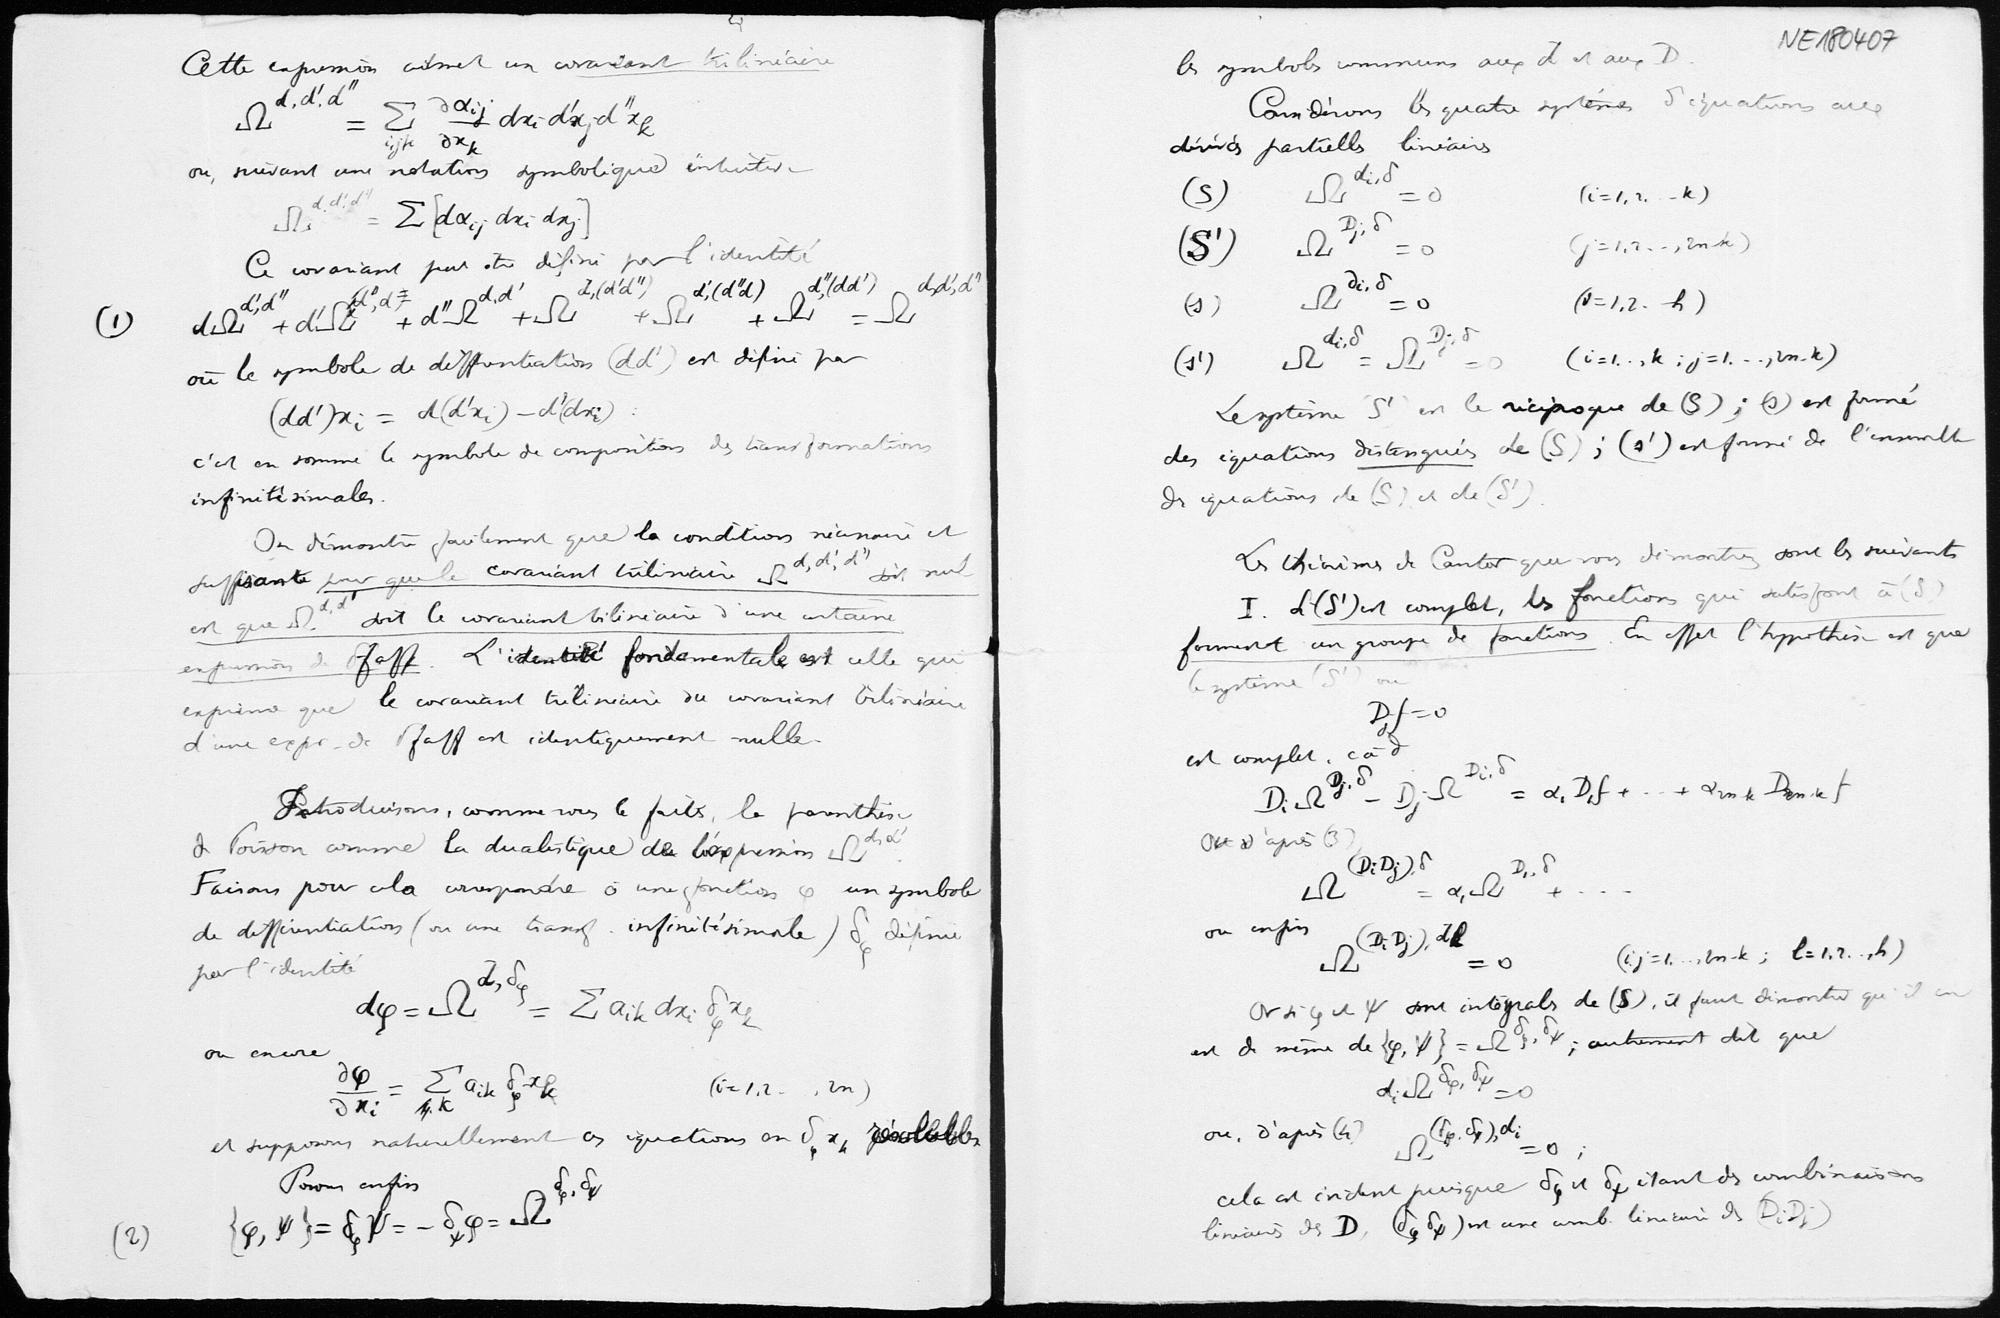 Cette expression admet un covariant trilinéaire
Ω^{d,d',d''} = Σ_{ijk} ∂α_{ij}/∂x_k dx_i d'x_j d''x_k
ou, suivant une notation symbolique intuitive
Ω^{d,d',d''} = Σ[dα_{ij} dx_i dx_j]
Ce covariant peut être défini par l'identité
(1) dΩ^{d',d''} + d'Ω^{d'',d} + d''Ω^{d,d'} + Ω^{d,(d'd'')} + Ω^{d',(d''d)} + Ω^{d'',(dd')} = Ω^{d,d',d''}
où le symbole de différentiation (dd') est défini par
(dd')x_i = d(d'x_i) – d'(dx_i) :
c'est en somme le symbole de composition des transformations
infinitésimales.
On démontre facilement que la condition nécessaire et
suffisante pour que le covariant trilinéaire Ω^{d,d',d''} soit nul
est que Ω^{d,d'} soit le covariant bilinéaire d'une certaine
expression de Pfaff. L'identité fondamentale est celle qui
exprime que le covariant trilinéaire du covariant bilinéaire
d'une expr. de Pfaff est identiquement nulle.
Introduisons, comme vous le faites, la parenthèse
de Poisson comme la dualistique de l'expression Ω^{d,d'}.
Faisons pour cela correspondre à une fonction φ un symbole
de différentiation (ou une transf. infinitésimale) δ_φ définie
par l'identité
dφ = Ω^{d,δ_φ} = Σ a_{ik} dx_i δ_φ x_k
ou encore
∂φ/∂x_i = Σ_k a_{ik} δ_φ x_k (i=1,2. . , 2n)
et supposons naturellement ces équations en δ_φ x_k résolubles
Posons enfin
(2) {φ, ψ} = δ_φ ψ = – δ_ψ φ = Ω^{δ_φ, δ_ψ}
NE180407
les symboles communs aux d et aux D.
Considérons les quatre systèmes d'équations aux
dérivées partielles linéaires
(S) Ω^{d_i,δ} = 0 (i=1,2. . . k)
(S') Ω^{D_j,δ} = 0 (j=1,2. . , 2n-k)
(s) Ω^{∂_i,δ} = 0 (i=1,2. . h)
(s') Ω^{d_i,δ} = Ω^{D_j,δ} = 0 (i=1. ., k ; j=1. . ., 2n-k)
Le système S' est le réciproque de (S) ; (s) est formé
des équations distinguées de (S) ; (s') est formé de l'ensemble
des équations de (S) et de (S').
Les théorèmes de Cantor que vous démontrez sont les suivants
I. Si (S') est complet, les fonctions qui satisfont à (S)
forment un groupe de fonctions. En effet l'hypothèse est que
le système (S') ou
D_j f = 0
est complet, c à d
D_i Ω^{D_j,δ} – D_j Ω^{D_i,δ} = α_1 D_1 f + . . . + α_{2n-k} D_{2n-k} f
Or d'après (3)
Ω^{(D_i D_j),δ} = α_1 Ω^{D_1,δ} + . . . .
ou enfin
Ω^{(D_i D_j),d_l} = 0 (i,j=1. . ., 2n-k ; l=1,2. . , h)
Or si φ et ψ sont intégrales de (S), il faut démontrer qu'il en
est de même de {φ, ψ} = Ω^{δ_φ, δ_ψ} ; autrement dit que
d_i Ω^{δ_φ, δ_ψ} = 0
ou, d'après (4) Ω^{(δ_φ, δ_ψ), d_i} = 0 ;
cela est évident puisque δ_φ et δ_ψ étant des combinaisons
linéaires des D, (δ_φ δ_ψ) est une comb. linéaire des (D_i D_j)